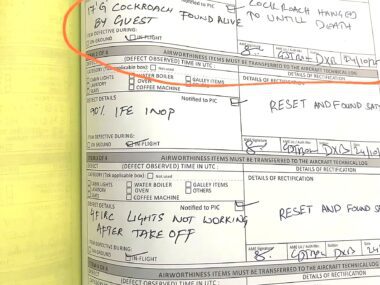 17'G' COCKROACH FOUND ALIVE
BY GUEST
COCKROACH HANGED
TO UNTILL DEATH
ITEM DEFECTIVE DURING:
ON GROUND IN-FLIGHT
DXB
ITEM 2 OF 4 AIRWORTHINESS ITEMS MUST BE TRANSFERRED TO THE AIRCRAFT TECHNICAL LOG
(DEFECT OBSERVED) TIME IN UTC: DETAILS OF RECTIFICATION
CATEGORY (Tick applicable box) Not used
CABIN LIGHTS WATER BOILER GALLEY ITEMS
LAVATORY OVEN OTHERS
SEATS COFFEE MACHINE
DEFECT DETAILS Notified to PIC
90% IFE INOP
RESET AND FOUND SAT
ITEM DEFECTIVE DURING:
ON GROUND IN-FLIGHT
AME Signature
DXB
ITEM 3 OF 4 AIRWORTHINESS ITEMS MUST BE TRANSFERRED TO THE AIRCRAFT TECHNICAL LOG
(DEFECT OBSERVED) TIME IN UTC: DETAILS OF RECTIFICATION
CATEGORY (Tick applicable box) Not used
CABIN LIGHTS WATER BOILER GALLEY ITEMS
LAVATORY OVEN OTHERS
SEATS COFFEE MACHINE
DEFECT DETAILS Notified to PIC
4 FIRC LIGHTS NOT WORKING
AFTER TAKE OFF
RESET AND FOUND SA
ITEM DEFECTIVE DURING:
ON GROUND IN-FLIGHT
AME Signature
DXB
ITEM 4 OF 4 AIRWORTHINESS ITEMS MUST BE TRANSFERRED TO THE AIRCRAFT TECHNICAL